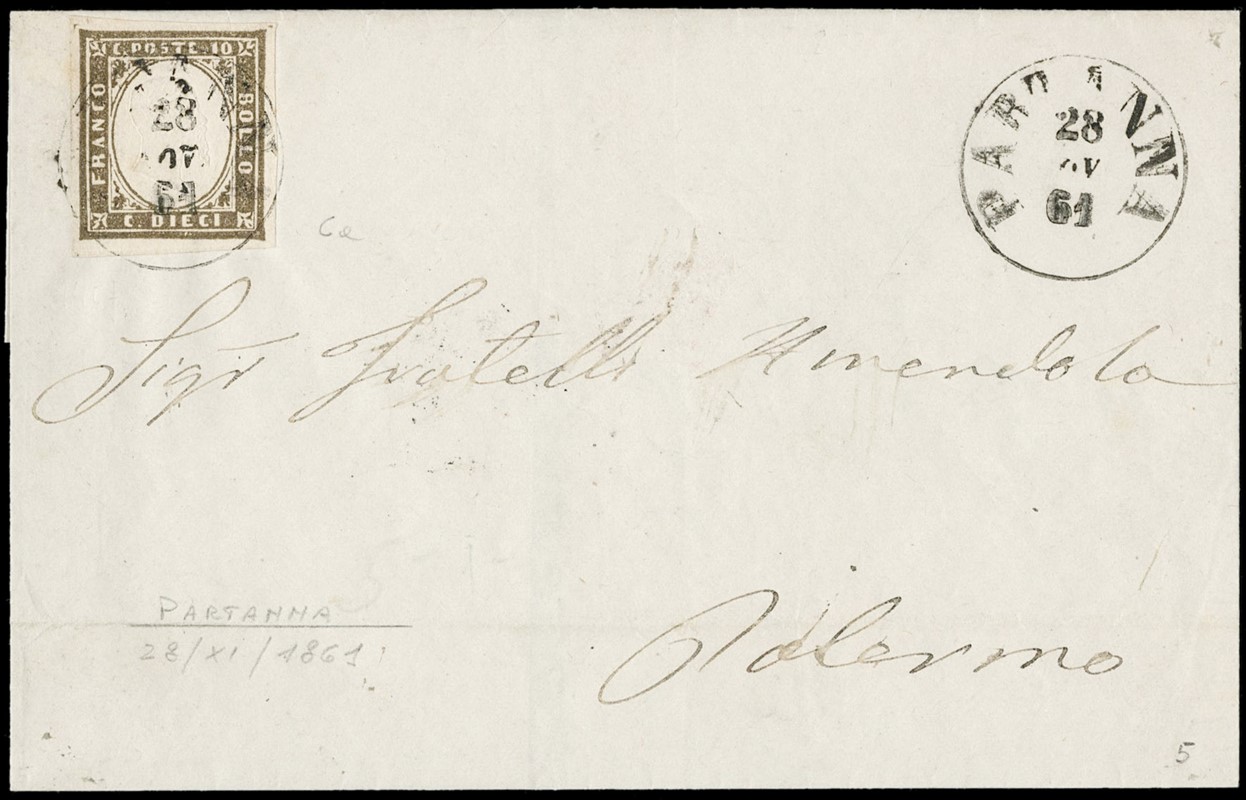 C. POSTE 10
FRANCO
BOLLO
C. DIECI
28
OV
61
PARTANNA
28
OV
61
Ca
Sigri Fratelli Amendola
Palermo
PARTANNA
28/XI/1861
5